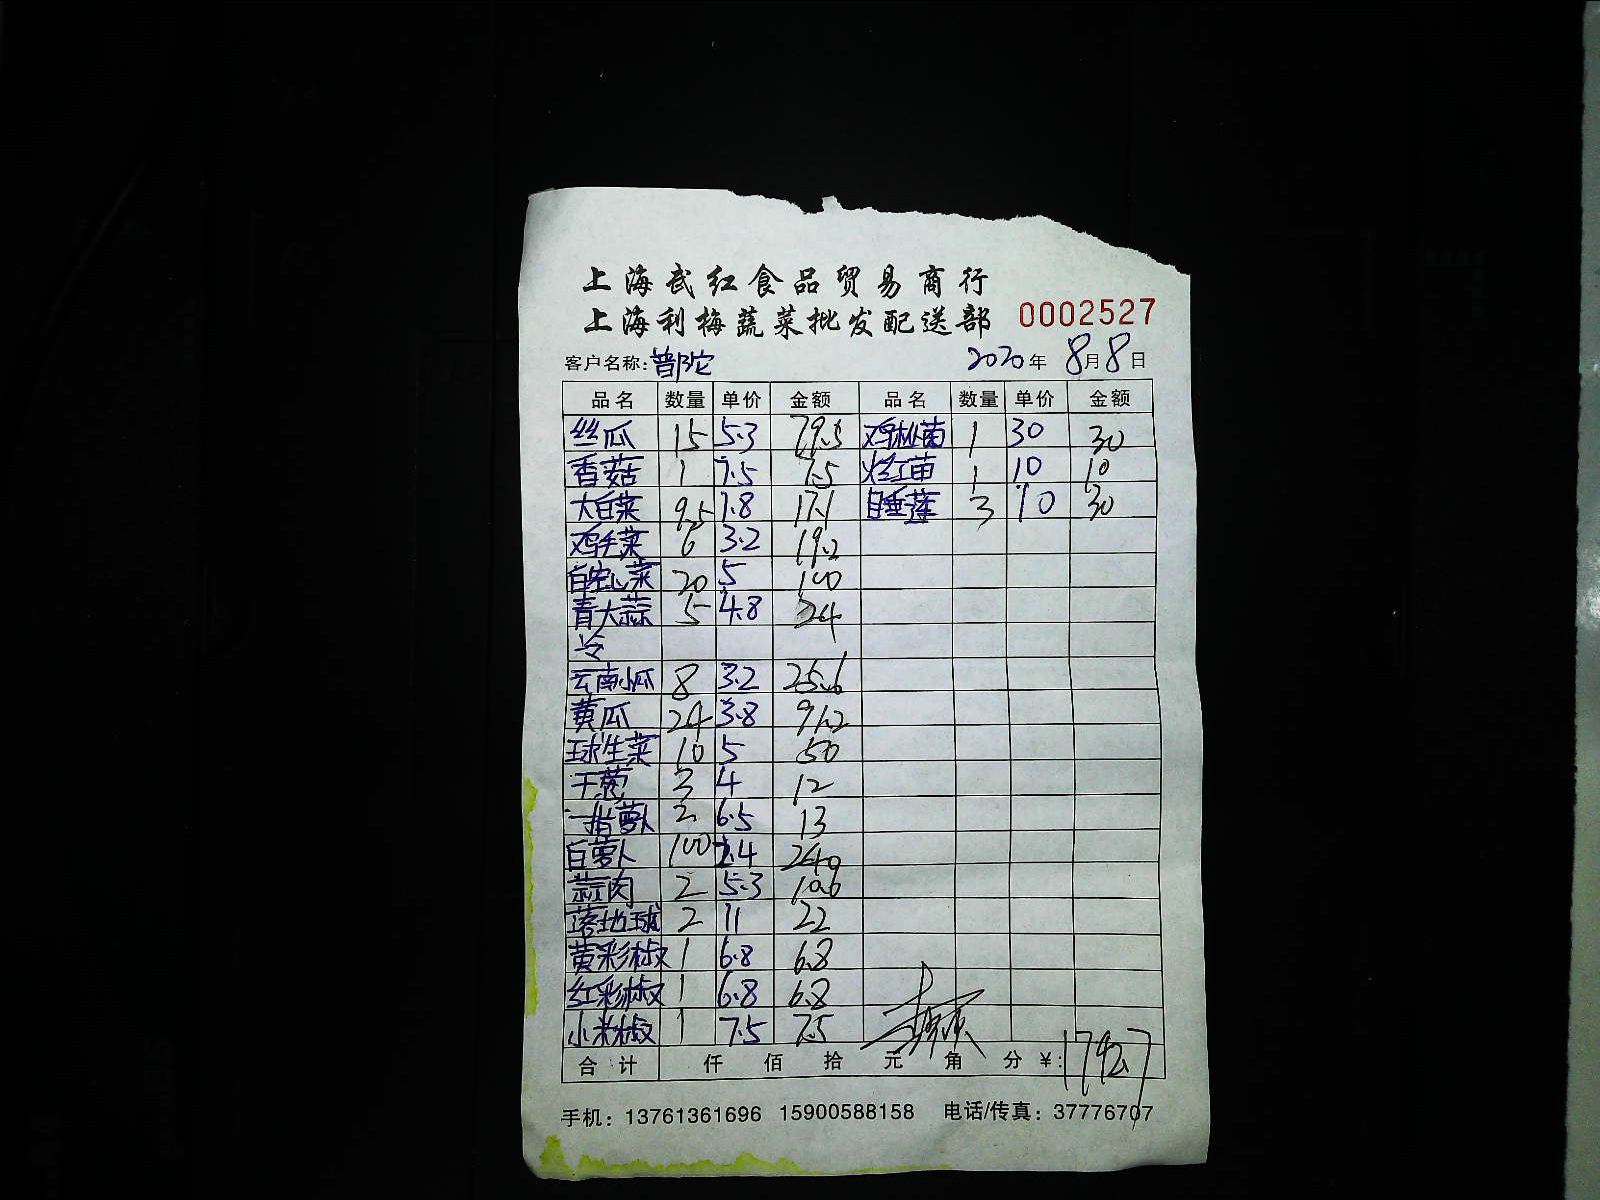 上海武红食品贸易商行
上海利梅蔬菜批发配送部 0002527
客户名称: 普陀 2020年 8月 8日
品名 数量 单价 金额 品名 数量 单价 金额
丝瓜 15 5.3 79.5 鸡枞菌 1 30 30
香菇 1 7.5 7.5 红苗 1 10 10
大白菜 9.5 1.8 17.1 睡莲 3 10 30
鸡毛菜 6 3.2 19.2
白空心菜 20 5 100
青大蒜 5 4.8 24
冷
云南小瓜 8 3.2 25.6
黄瓜 24 3.8 91.2
球生菜 10 5 50
干葱 3 4 12
一指萝卜 2 6.5 13
白萝卜 100 2.4 240
蒜肉 2 5.3 10.6
落地球 2 11 22
黄彩椒 1 6.8 6.8
红彩椒 1 6.8 6.8
小米椒 1 7.5 7.5
合计 仟 佰 拾 元 角 分 ¥:
手机: 13761361696 15900588158 电话/传真: 37776707